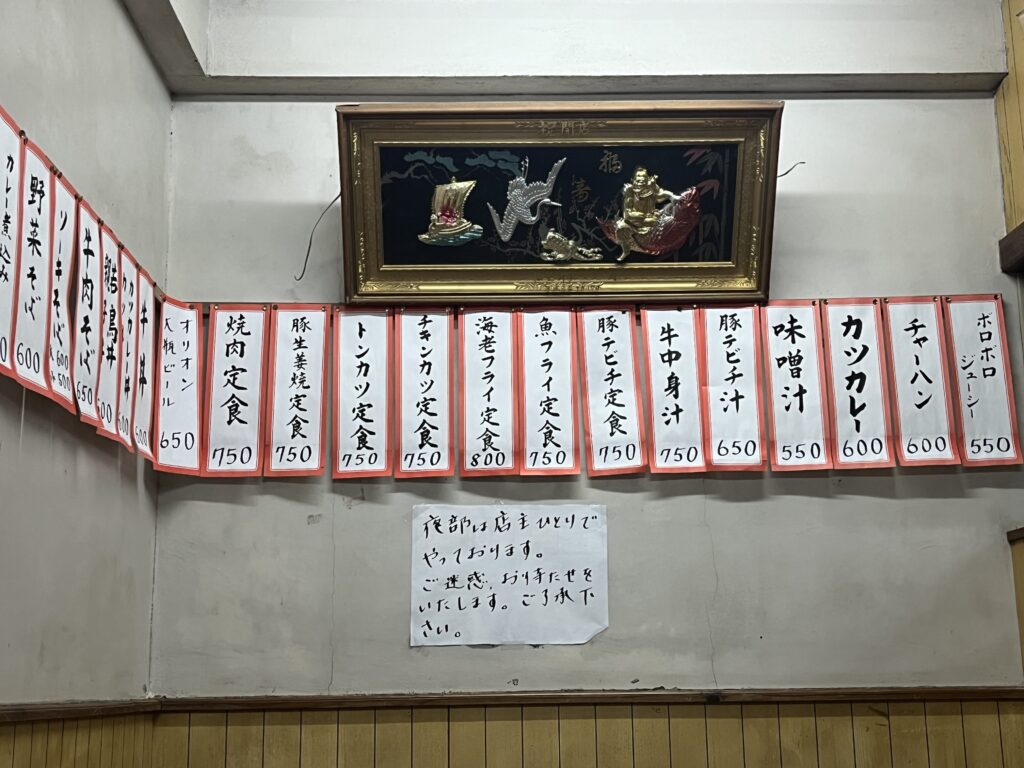 祝開店
福
寿
カレー煮込み
野菜そば
600
ソーキそば
大600
小500
牛肉そば
650
親子丼
カツカレー丼
600
牛丼
600
オリオン
大瓶ビール
650
焼肉定食
750
豚生姜焼定食
750
トンカツ定食
750
チキンカツ定食
750
海老フライ定食
800
魚フライ定食
750
豚テビチ定食
750
牛中身汁
750
豚テビチ汁
650
味噌汁
550
カツカレー
600
チャーハン
600
ボロボロ
ジューシー
550
夜部は店主ひとりで
やっております。
ご迷惑、お待たせを
いたします。ご了承下
さい。